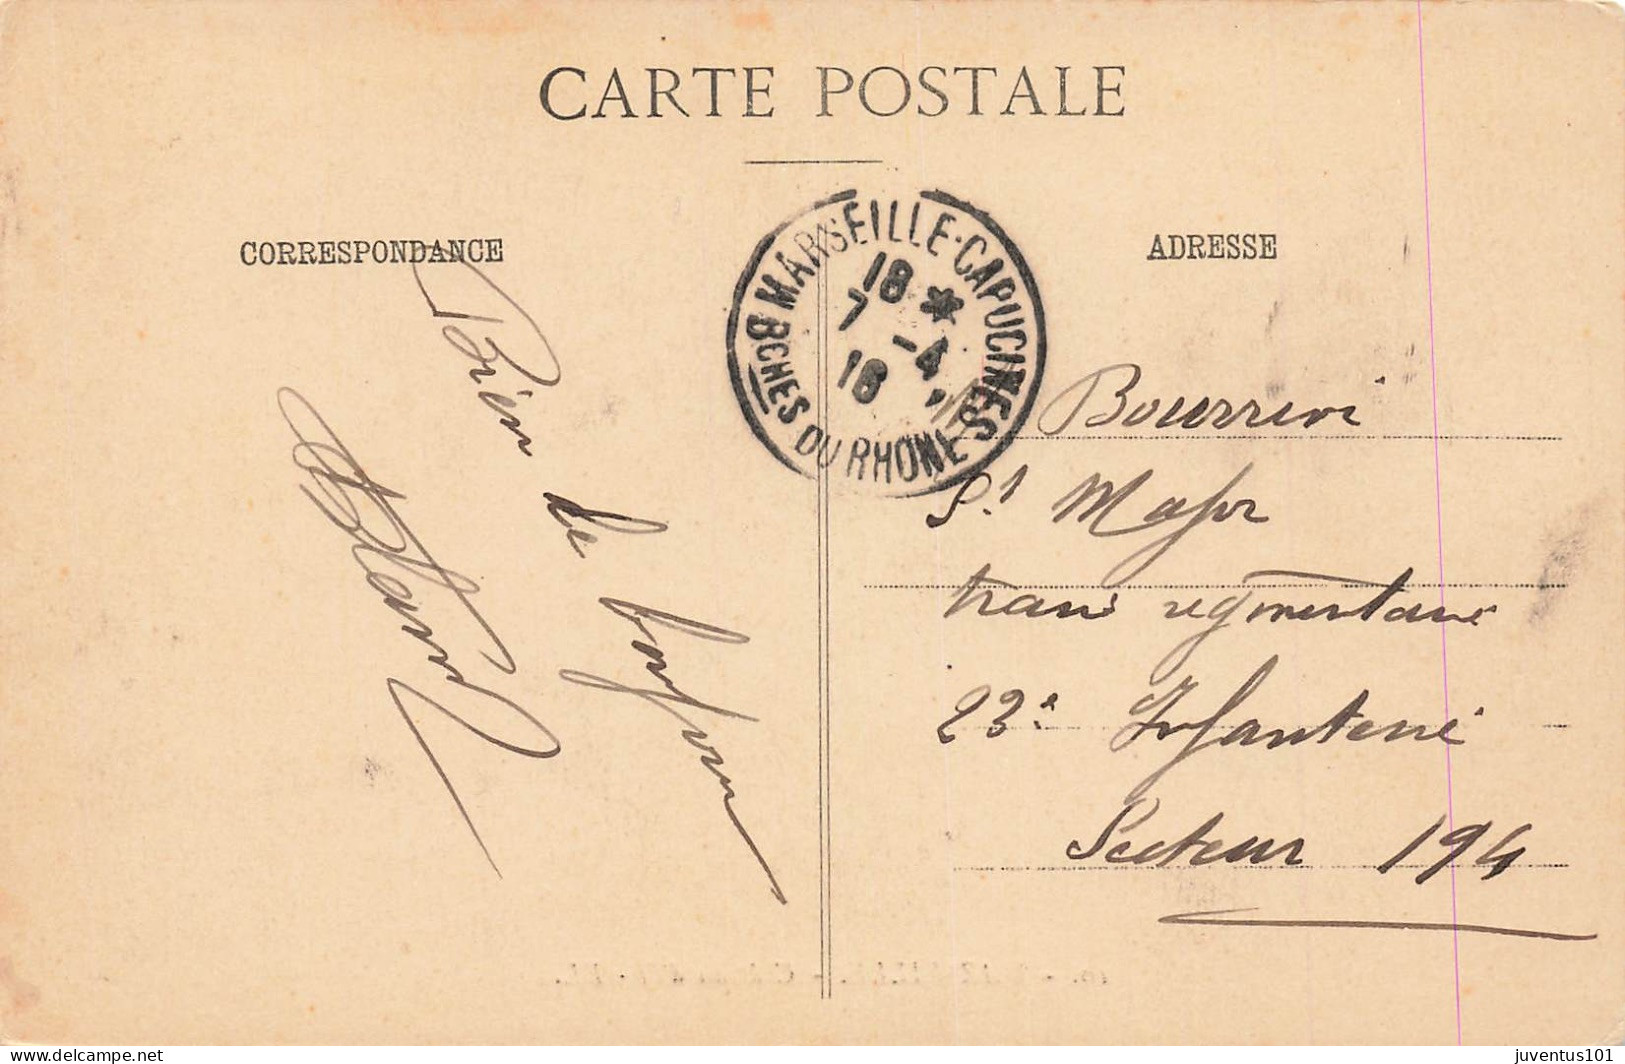 CARTE POSTALE
CORRESPONDANCE
ADRESSE
MARSEILLE-CAPUCINES
18 *
7 -4
18
BCHES DU RHONE
Bien le bonjour
Bourrin
St Major
train regimentaire
23e Infanterie
Secteur 194
juventus101